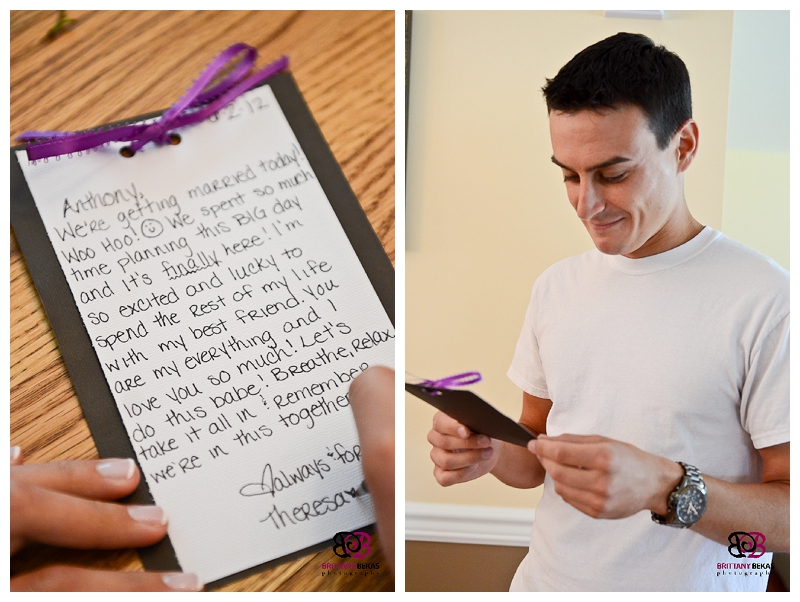 2-12
Anthony,
We're getting married today!
Woo Hoo! We spent so much
time planning this BIG day
and it's finally here! I'm
so excited and lucky to
spend the rest of my life
with my best friend. You
are my everything and I
love you so much! Let's
do this babe! Breathe, Relax
take it all in & Remember
we're in this together
Always & for
Theresa
BRITTANY BEKAS
photography
BRITTANY BEKAS
photography